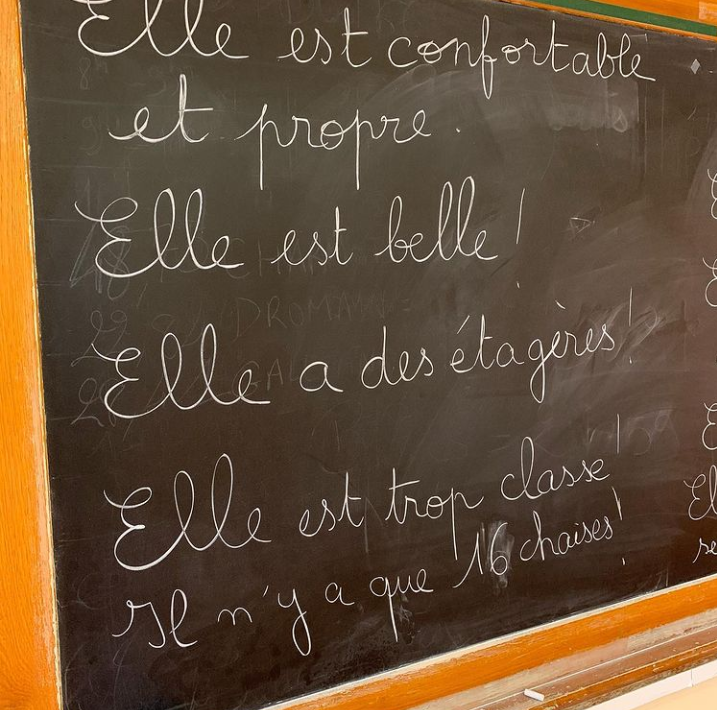 Elle est confortable
et propre.
Elle est belle!
Elle a des étagères!
Elle est trop classe!
Il n'y a que 16 chaises!